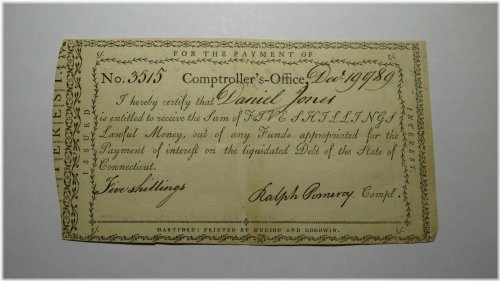 FOR THE PAYMENT OF
5/.
5/.
No. 3515 Comptroller's-Office, Decr. 19 1789
I hereby certify that Daniel Jones
is entitled to receive the Sum of FIVE SHILLINGS
Lawful Money, out of any Funds appropriated for the
Payment of interest on the liquidated Debt of the State of
Connecticut.
Five shillings
Ralph Pomeroy, Compt.
ISSUED
INTEREST.
5/.
HARTFORD: PRINTED BY HUDSON AND GOODWIN.